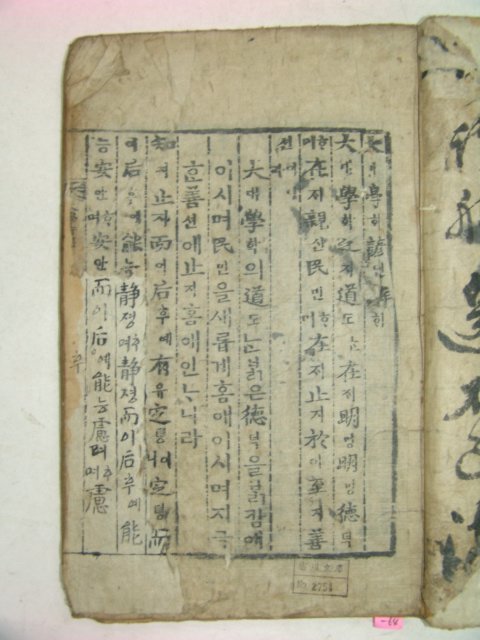 大대學학諺언解해
大대學학之지道도는在재明명明명德덕
ᄒᆞ며在재親신民민ᄒᆞ며在재止지於어至지善
션
大대學학의道도는ᄇᆞᆰ은德덕을ᄇᆞᆰ캄애
이시며民민을새롭게홈애이시며지극
ᄒᆞᆫ善션에止지홈애인ᄂᆞ니라
知지止지而이后후에有유定뎡이니定뎡而
이后후에能능靜졍ᄒᆞ며靜졍而이后후에能
능安안ᄒᆞ며安안而이后후에能능慮려ᄒᆞ며慮
No 2754